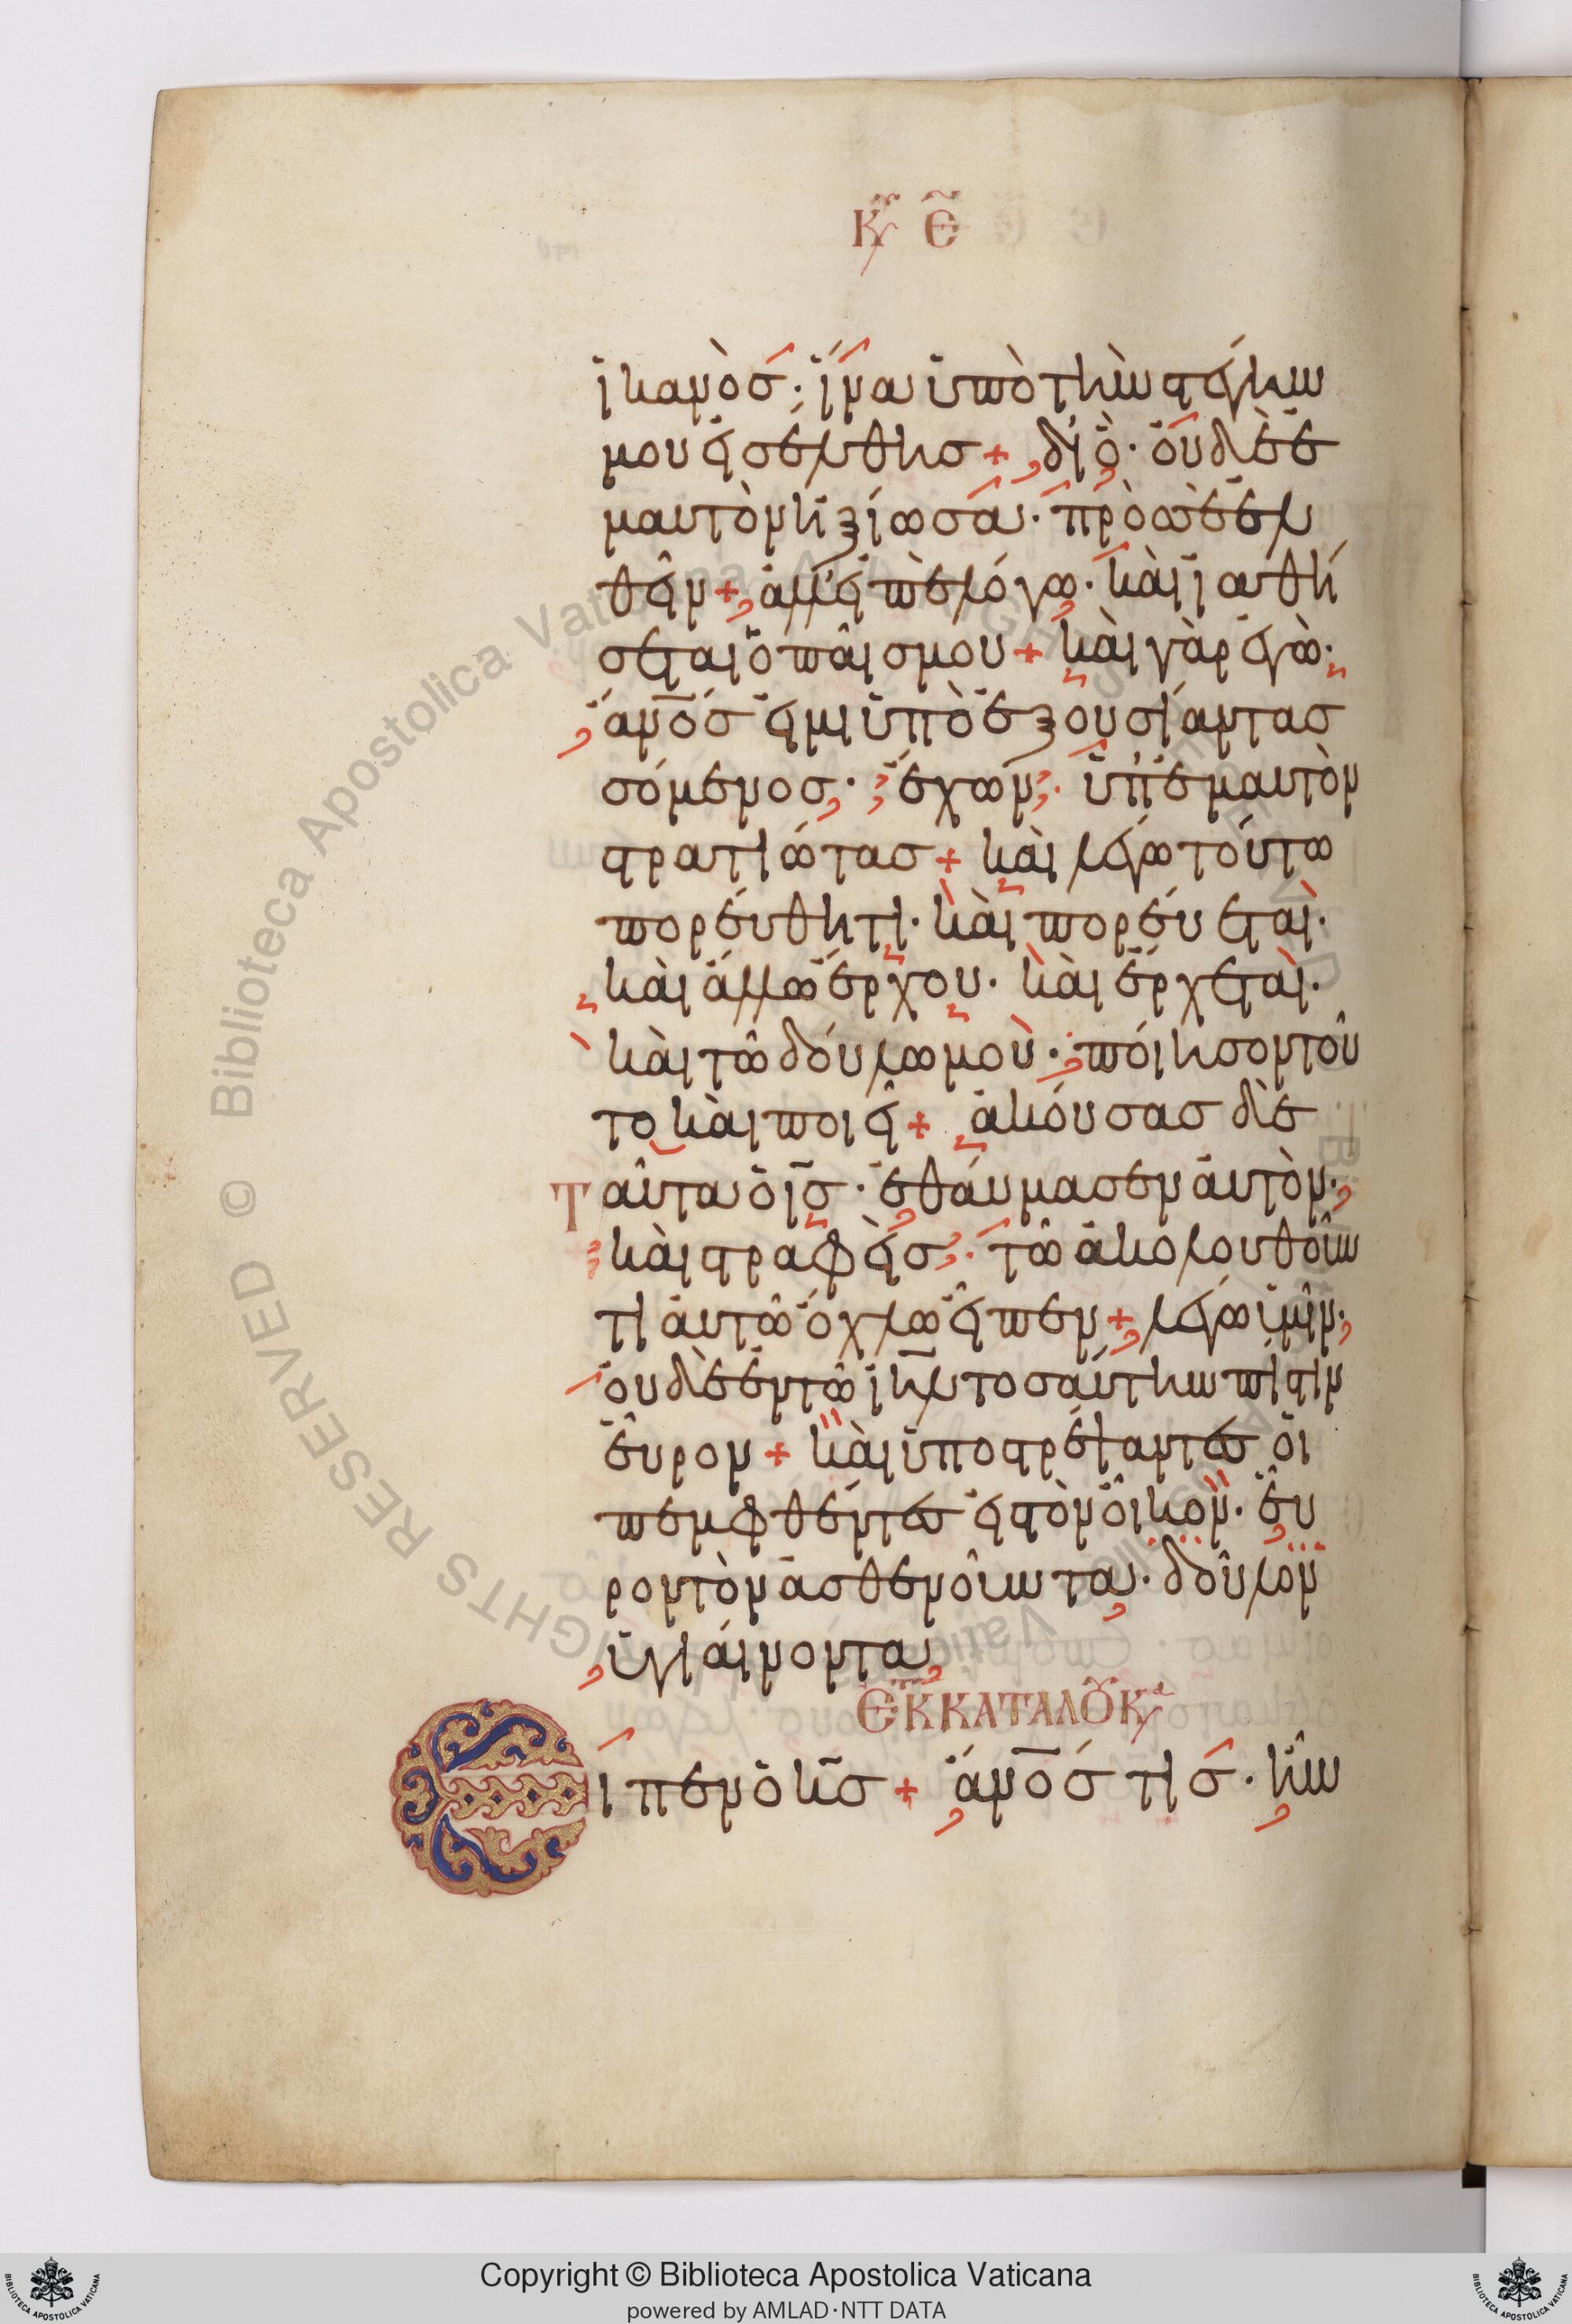 Κυ Ε
ἱκανὸσ· ἵνα ὑπὸ τὴν στέγην
μου εἰσέλθησ + διὸ· οὐδὲ ἐ
μαυτὸν ἠξίωσα· πρὸσ σὲ ἐλ
θεῖν + ἀλλ' εἰπὲ λόγω· καὶ ἰαθή
σεται ὁ παῖσ μου + καὶ γὰρ ἐγὼ·
ἄνοσ εἰμι ὑπὸ ἐξουσίαν τασ
σόμενοσ· ἔχων· ὑπ' ἐμαυτὸν
στρατιώτασ + καὶ λέγω τούτω
πορεύθητι· καὶ πορεύεται·
καὶ ἄλλω ἔρχου· καὶ ἔρχεται·
καὶ τῶ δούλω μοὺ· ποίησον τοῦ
το καὶ ποιεῖ + ἀκούσασ δὲ
ταῦτα ὁ ισ· ἐθαύμασεν αὐτὸν·
καὶ στραφεὶσ· τῶ ἀκολουθοῦν
τι αὐτῶ ὄχλω εἶπεν + λέγω ὑμῖν·
οὐδὲ ἐν τῶ ιηλ τοσαύτην πίστιν
εὗρον + καὶ ὑποστρέψαντεσ οἱ
πεμφθέντεσ εἰσ τὸν οἶκον· εὗ
ρον τὸν ἀσθενοῦντα· δοῦλον
ὑγιαίνοντα
ΕΚ Κ ΚΑΤΑ ΛΟΥΚ
Ειπεν ὁ κσ + ἄνοσ τισ· ἦν
Copyright © Biblioteca Apostolica Vaticana
powered by AMLAD·NTT DATA